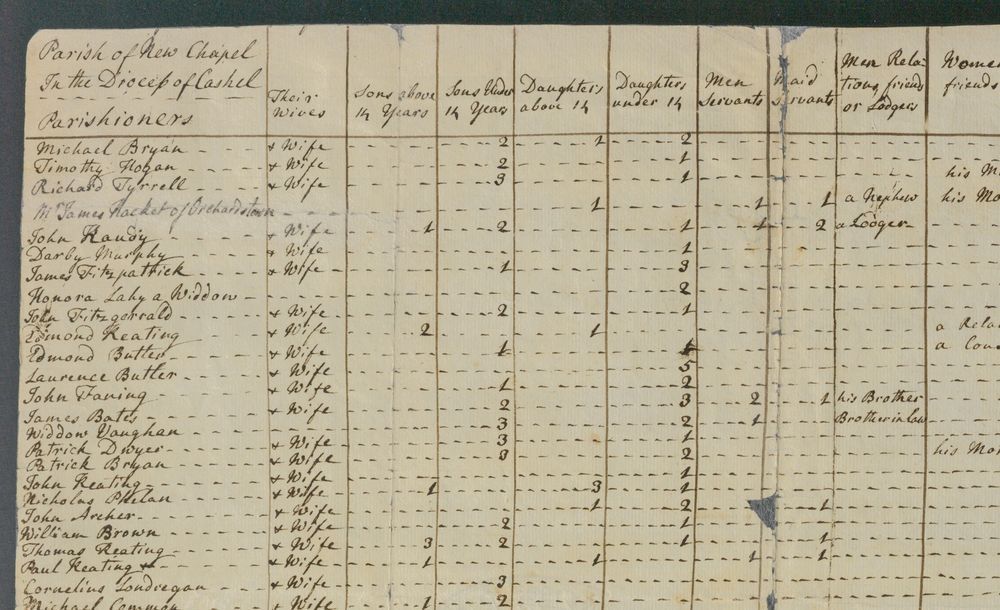 Parish of New Chapel
In the Diocess of Cashel
Parishioners
Their Wives
Sons above 14 Years
Sons Under 14 Years
Daughters above 14
Daughters under 14
Men Servants
Maid Servants
Men Relations, friends or Lodgers
Women friends
Michael Bryan & Wife 2 1 2
Timothy Hogan & Wife 2 1
Richard Tyrrell & Wife 3 1 his M
Mr James Hacket of Orchardstown 1 1 1 a Nephew his Mo
John Handy & Wife 1 2 1 1 2 a Lodger
Darby Murphy & Wife 1
James Fitzpatrick & Wife 1 3
Honora Lahy a Widdow 2
John Fitzgerrald & Wife 2 1
Edmond Keating & Wife 2 1 a Rela
Edmond Butler & Wife 1 a Cou
Laurence Butler & Wife 5
John Faning & Wife 1 2
James Bates & Wife 2 3 2 1 his Brother
Widdow Vaughan 3 2 1 Brother in law
Patrick Dwyer & Wife 3 1
Patrick Bryan & Wife 3 2 his Mo
John Keating & Wife 1
Nicholas Phelan & Wife 1 3 1
John Archer & Wife 1 2 1
William Brown & Wife 2 1
Thomas Keating & Wife 3 2 1 1
Paul Keating & Wife 1 1 1 1
Cornelius Londregan & Wife 3
Michael Common & Wife 1 2